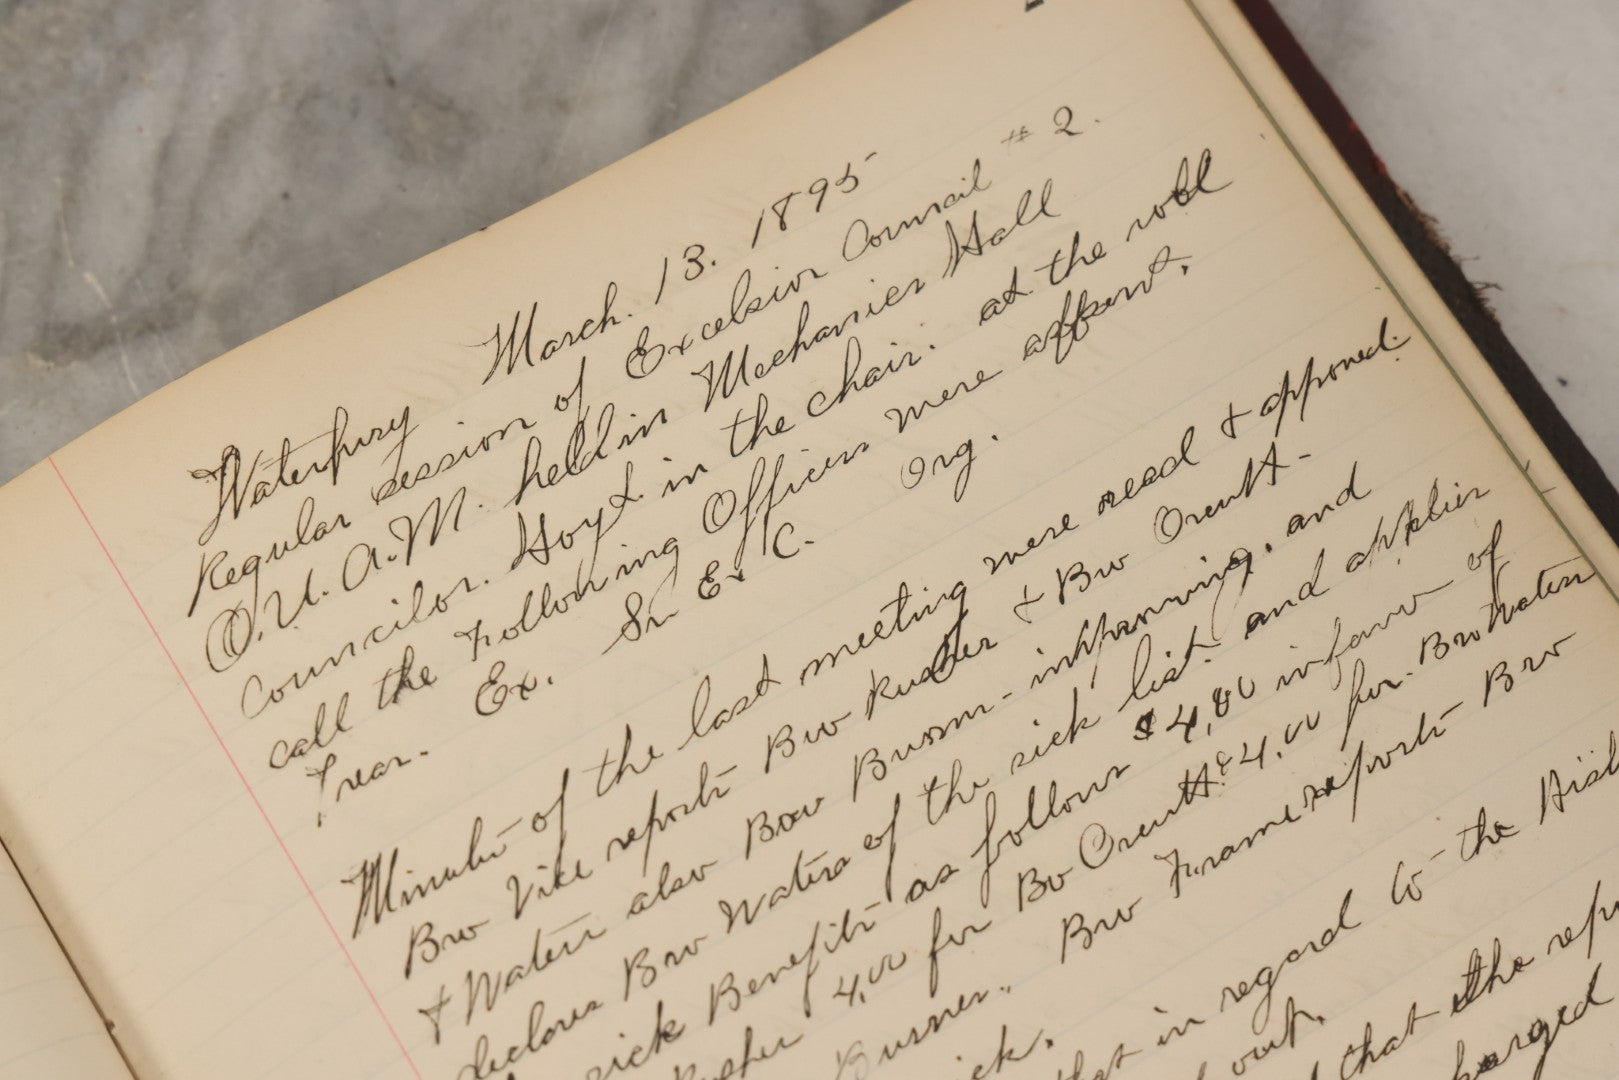 Waterbury March. 13. 1895
Regular session of Excelsior Council # 2.
O.U.A.M. held in Mechanics Hall
Councilor. Hoyt. in the chair. at the roll
call the Following Officers were absent.
Trear. Ex. Sr Ex C. Org.
Minutes of the last meeting were read & approved.
Bro Vike reports Bro Rusher & Bro Orcutt-
& Waters also Bro and
declares Bro Waters of the sick list and
sick Benefits as follows $4,00 in favor of
Rusher 4,00 for Bro Orcutt & 4.00 for. Bro Waters
Bro Frame reports Bro
ick.
that in regard to the
out.
that the
harged